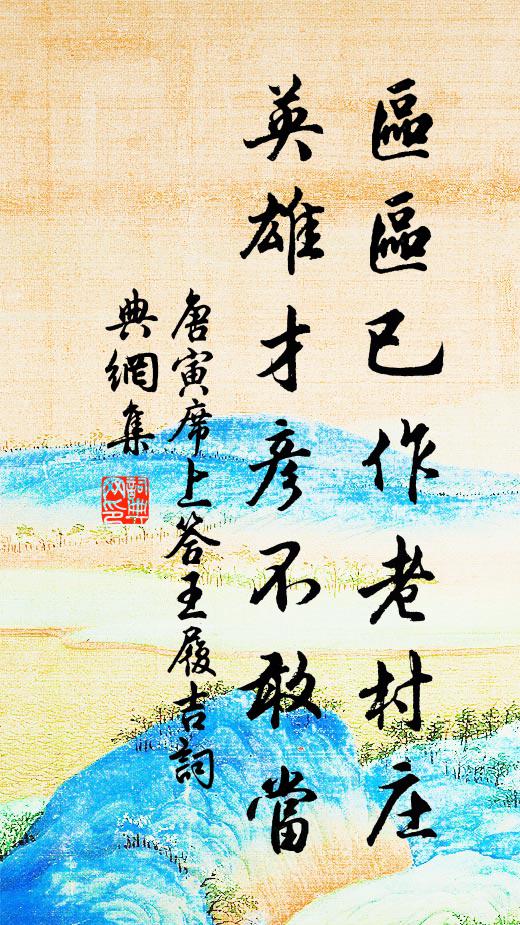 區區已作老村庄
英雄才彥不敢當
唐寅席上答王履吉詞
典網集
詞典